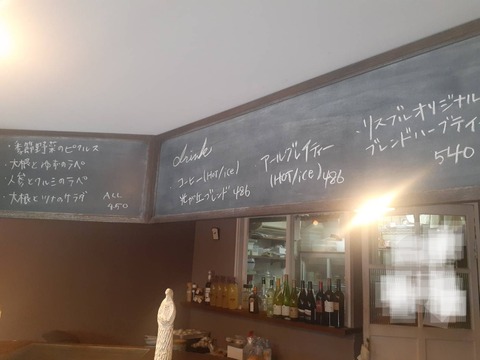 ・季節野菜のピクルス
・大根とゆずのラペ
・人参とクルミのラペ
・大根とツナのサラダ
ALL
450
drink
コーヒー(Hot/ice)
ブレンド 486
アールグレイティー
(Hot/ice) 486
・リスブルオリジナル
ブレンドハーブティー
540